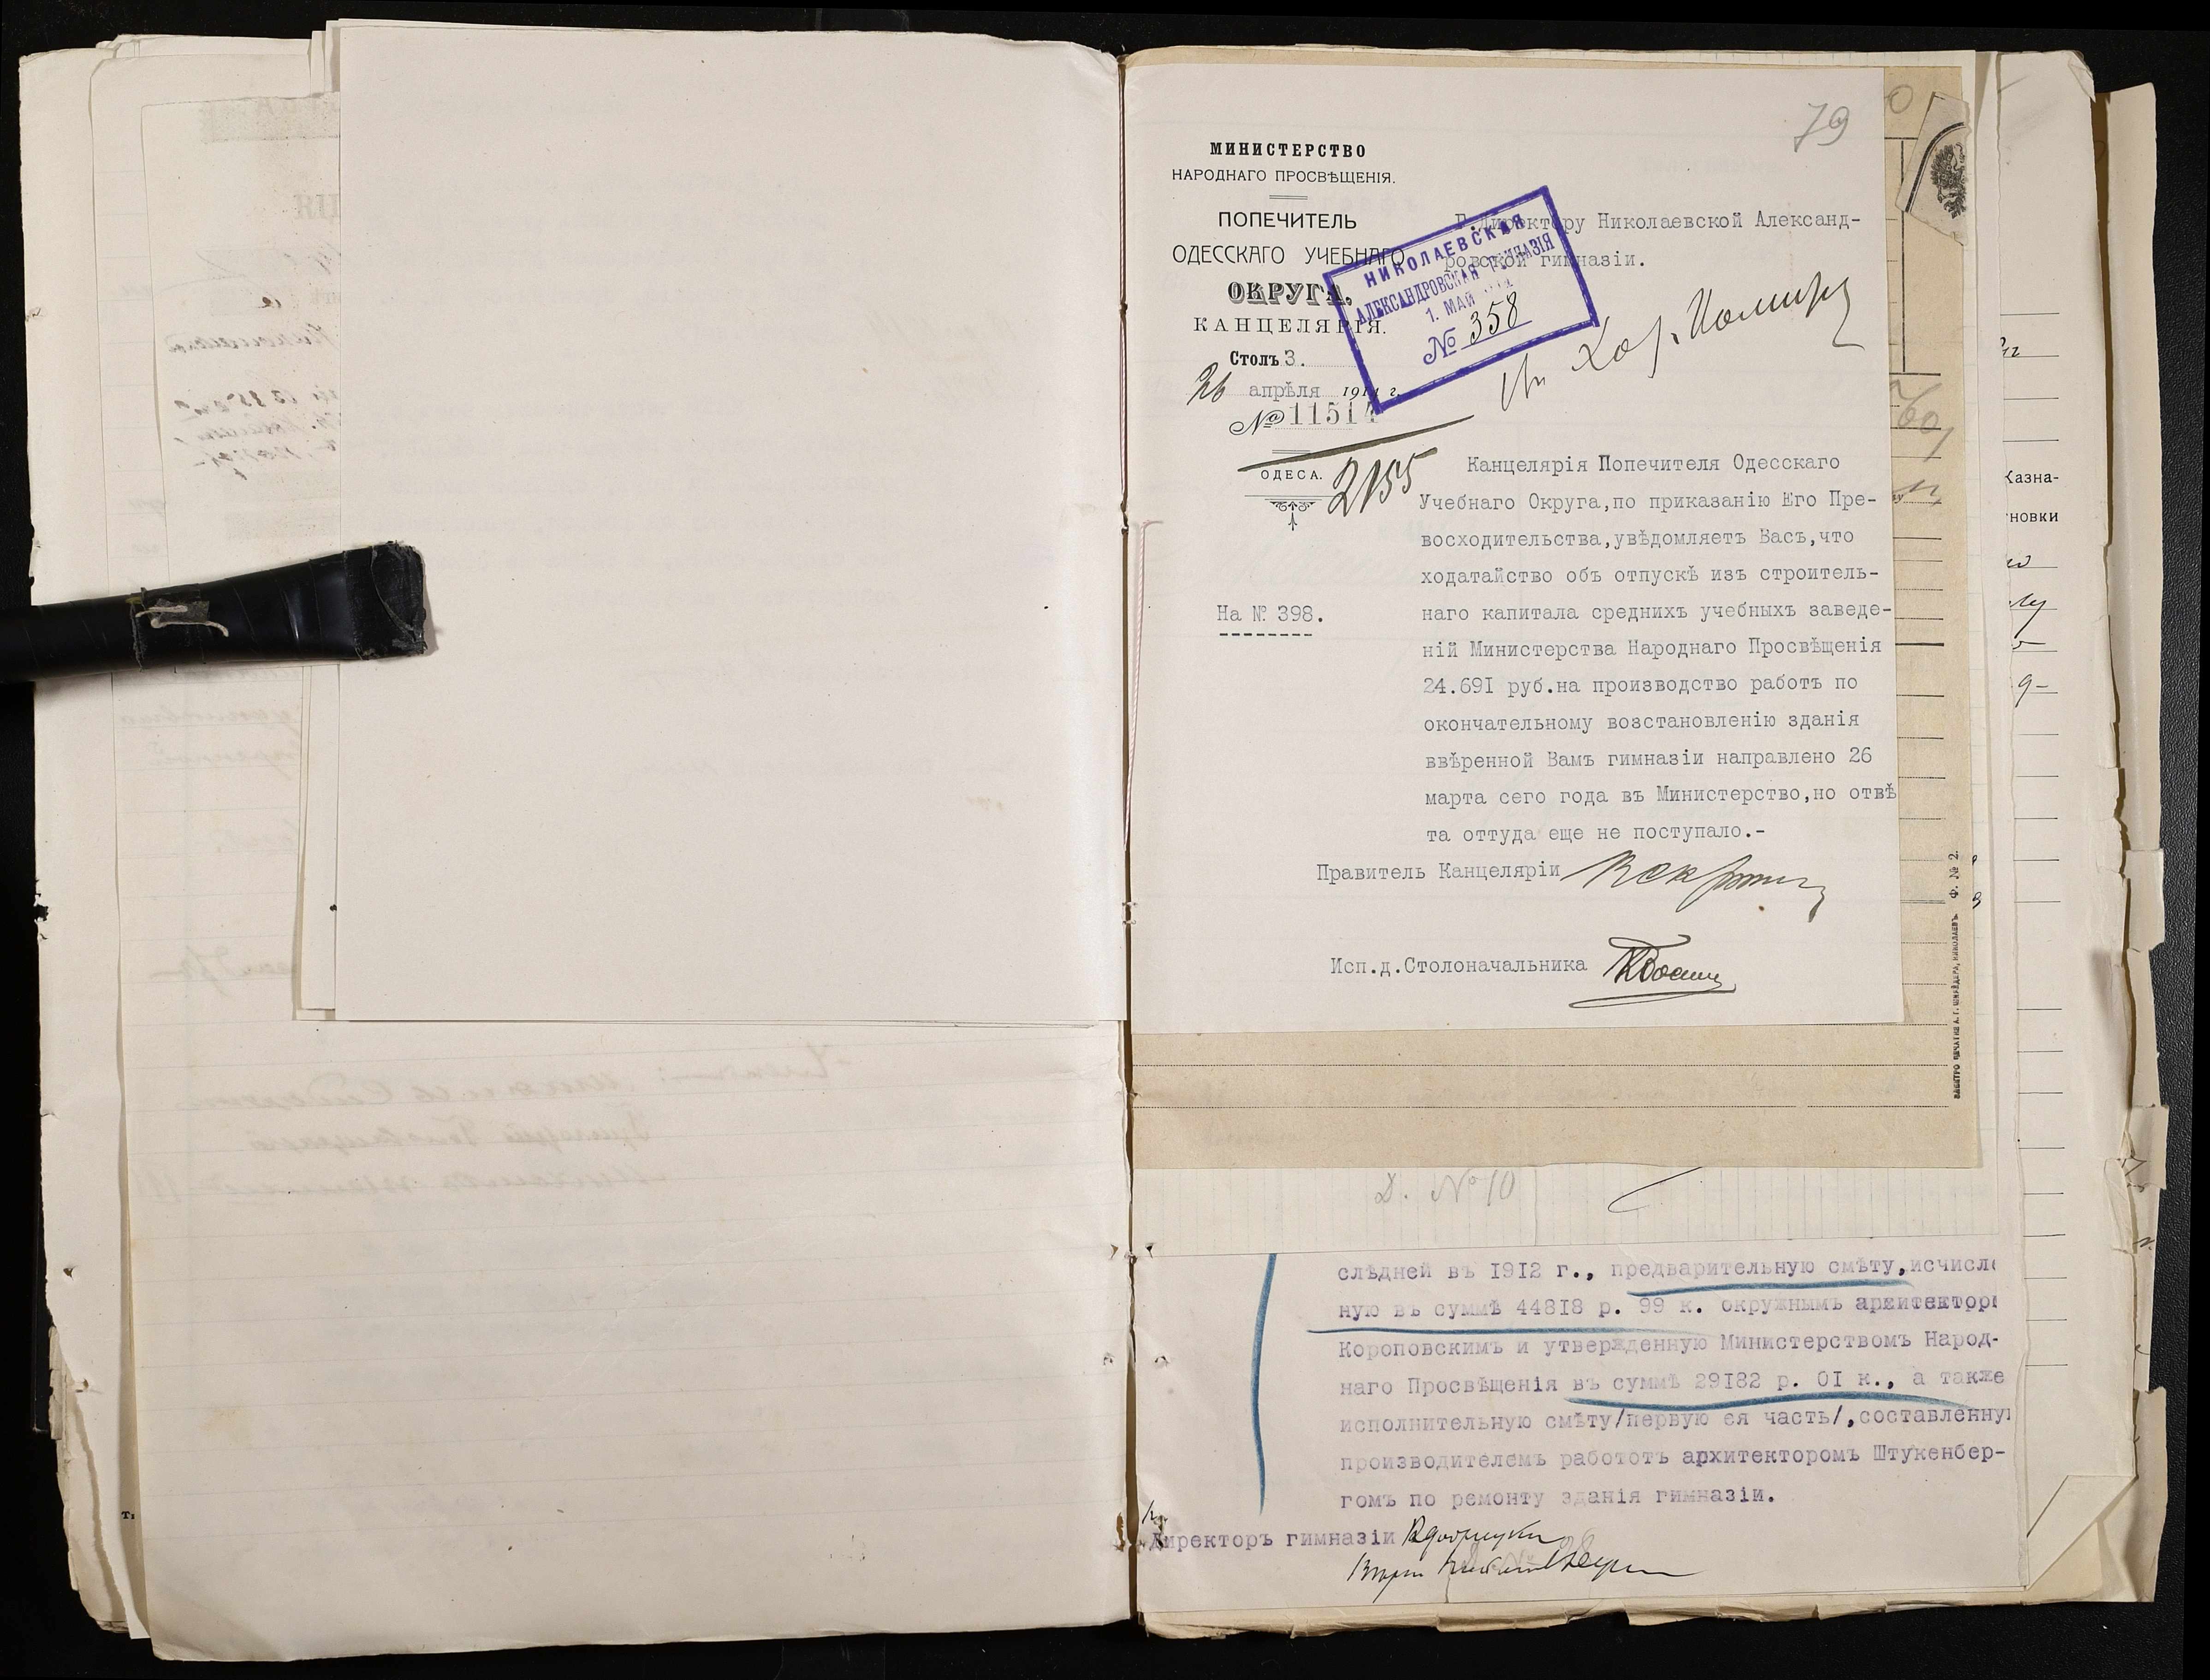 79
МИНИСТЕРСТВО
НАРОДНАГО ПРОСВѢЩЕНІЯ.
ПОПЕЧИТЕЛЬ
ОДЕССКАГО УЧЕБНАГО
ОКРУГА,
КАНЦЕЛЯРІЯ.
Столъ 3.
26 апрѣля 1914 г.
№ 11514
ОДЕСА.
2155
На № 398.
Г. Директору Николаевской Александ-
ровской гимназіи.
НИКОЛАЕВСКАЯ
АЛЕКСАНДРОВСКАЯ ГИМНАЗІЯ
1. МАЙ
№ 358
Канцелярія Попечителя Одесскаго
Учебнаго Округа,по приказанію Его Пре-
восходительства,увѣдомляетъ Васъ,что
ходатайство объ отпускѣ изъ строитель-
наго капитала среднихъ учебныхъ заведе-
ній Министерства Народнаго Просвѣщенія
24.691 руб.на производство работъ по
окончательному возстановленію зданія
ввѣренной Вамъ гимназіи направлено 26
марта сего года въ Министерство,но отвѣ
та оттуда еще не поступало.-
Правитель Канцеляріи
Исп.д.Столоначальника
Казна-
новки
Ф. № 2.
Д. № 10
слѣдней въ 1912 г., предварительную смѣту,исчисле
ную въ суммѣ 44818 р. 99 к. окружнымъ архитекторо
Короповскимъ и утвержденную Министерствомъ Народ-
наго Просвѣщенія въ суммѣ 29182 р. 01 к., а также
исполнительную смѣту/первую ея часть/,составленну
производителемъ работотъ архитекторомъ Штукенбер-
гомъ по ремонту зданія гимназіи.
Директоръ гимназіи